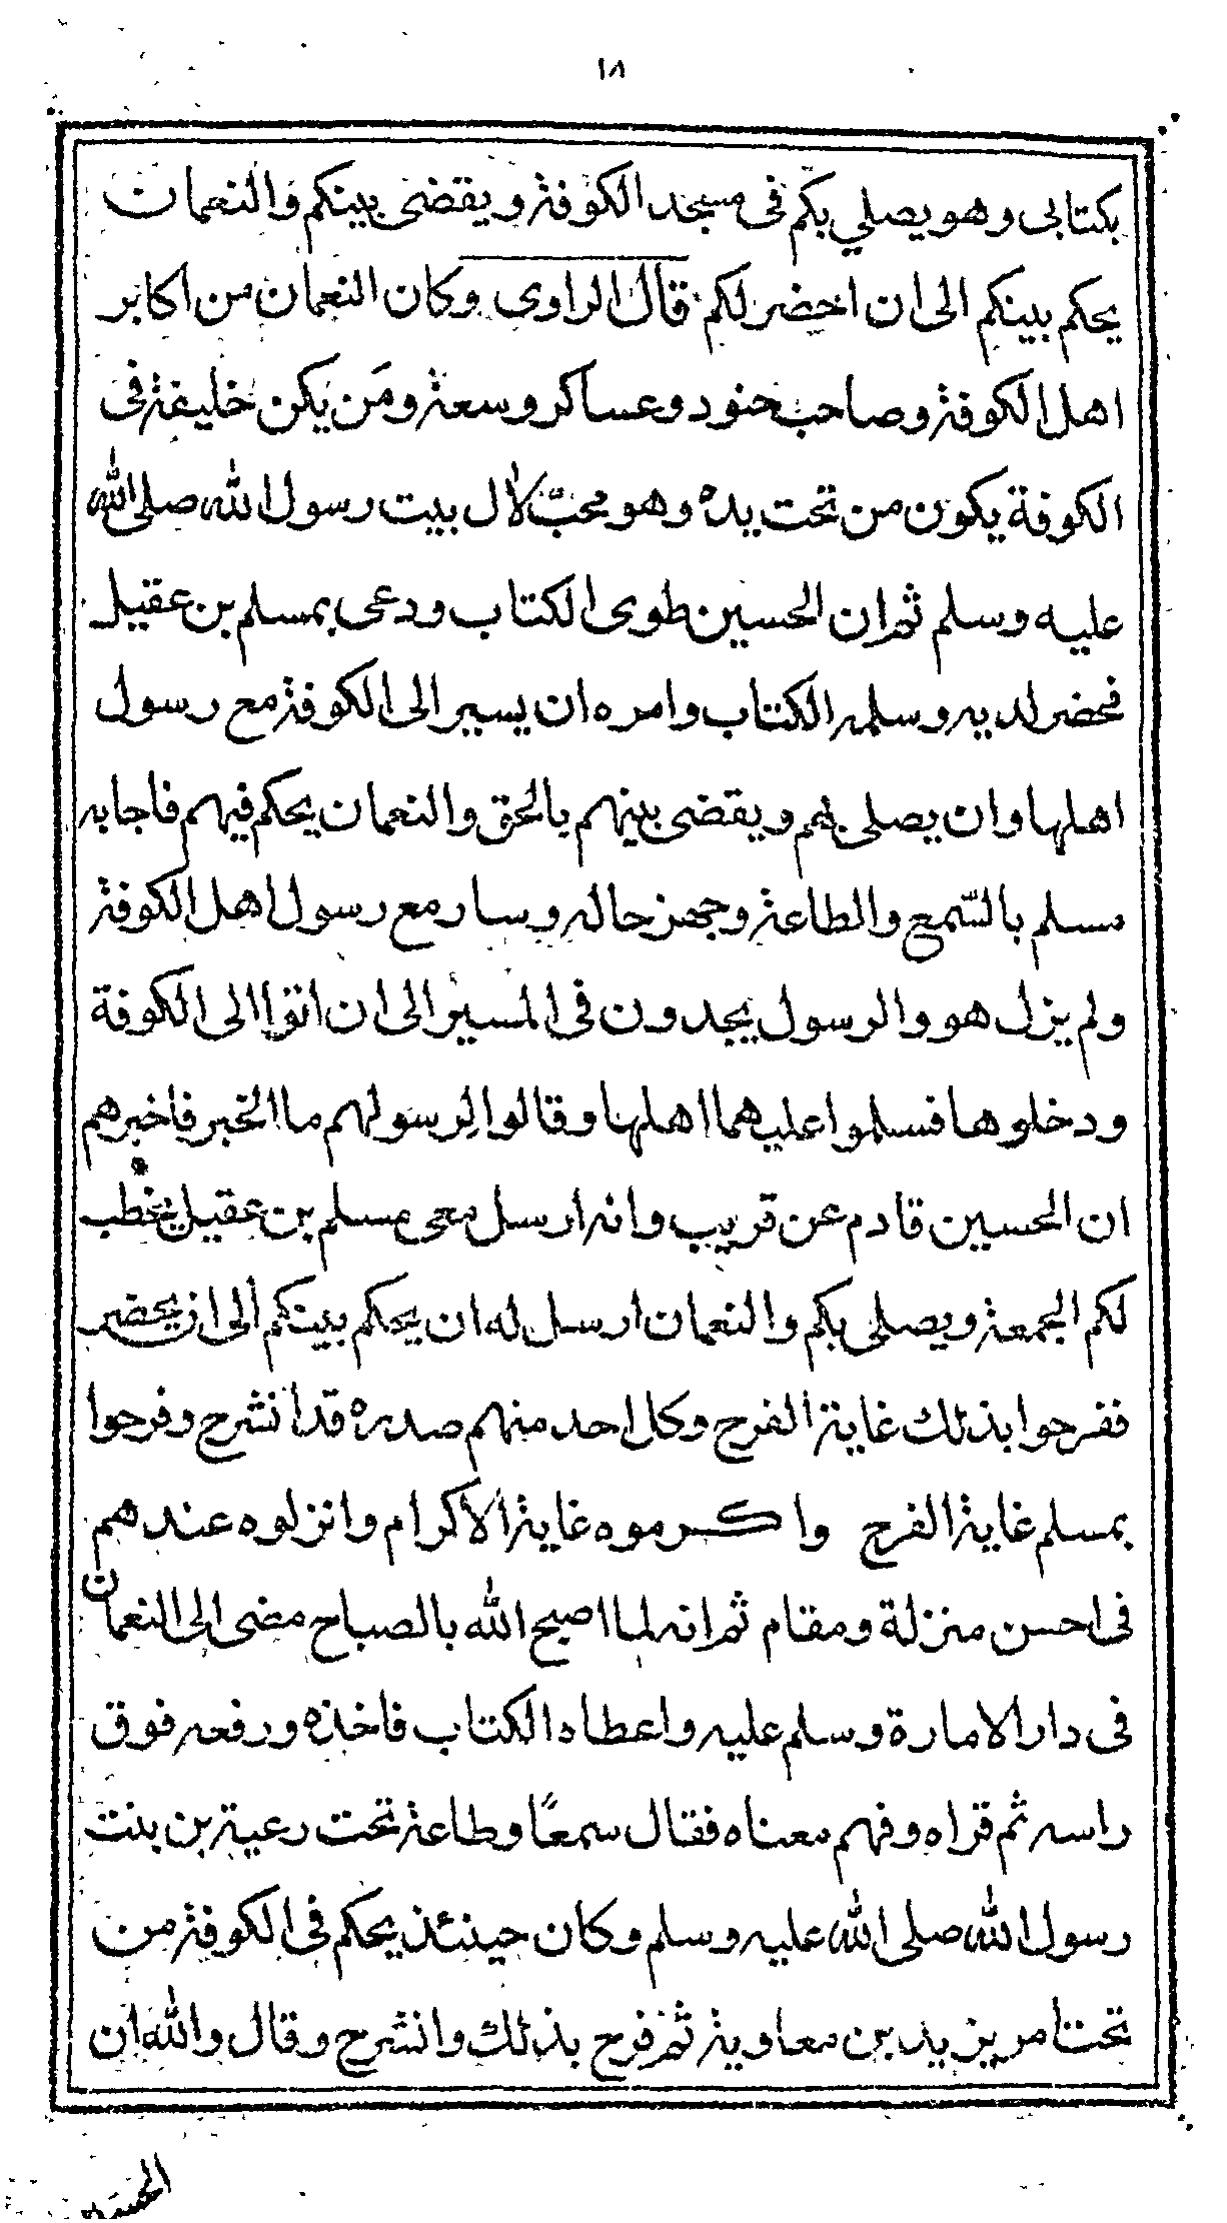 ١٨
بكتابى وهو يصلي بكم فى مسجد الكوفة ويقضى بينكم والنعمان
يحكم بينكم الى ان احضر لكم قال الراوى وكان النعمان من اكابر
اهل الكوفة وصاحب جنود وعساكر وسعة ومَن يكن خليفة فى
الكوفة يكون من تحت يده وهو محبّ لال بيت رسول الله صلى الله
عليه وسلم ثم ان الحسين طوى الكتاب ودعى بمسلم بن عقيل
فحضر لديه وسلمه الكتاب وامره ان يسير الى الكوفة مع رسول
اهلها وان يصلى بهم ويقضى بينهم بالحق والنعمان يحكم فيهم فاجابه
مسلم بالسّمع والطاعة وجهز حاله وسار مع رسول اهل الكوفة
ولم يزل هو والرسول يجدون فى المسير الى ان اتوا الى الكوفة
ودخلوها فسلموا عليهما اهلها وقالوا لرسولهم ما الخبر فاخبرهم
ان الحسين قادم عن قريب وانه ارسل معى مسلم بن عقيل يخطب
لكم الجمعة ويصلى بكم والنعمان ارسل له ان يحكم بينكم الى ان يحضر
ففرحوا بذلك غاية الفرح وكل احد منهم صدره قد انشرح وفرحوا
بمسلم غاية الفرح واكرموه غاية الاكرام وانزلوه عندهم
فى احسن منزلة ومقام ثم انه لما اصبح الله بالصباح مضى الى النعمان
فى دار الامارة وسلم عليه واعطاه الكتاب فاخذه ورفعه فوق
راسه ثم قراه وفهم معناه فقال سمعًا وطاعة تحت رعية بن بنت
رسول الله صلى الله عليه وسلم وكان حينئذ يحكم فى الكوفة من
تحت امر يزيد بن معاوية ثم فرح بذلك وانشرح وقال والله ان
الحسين